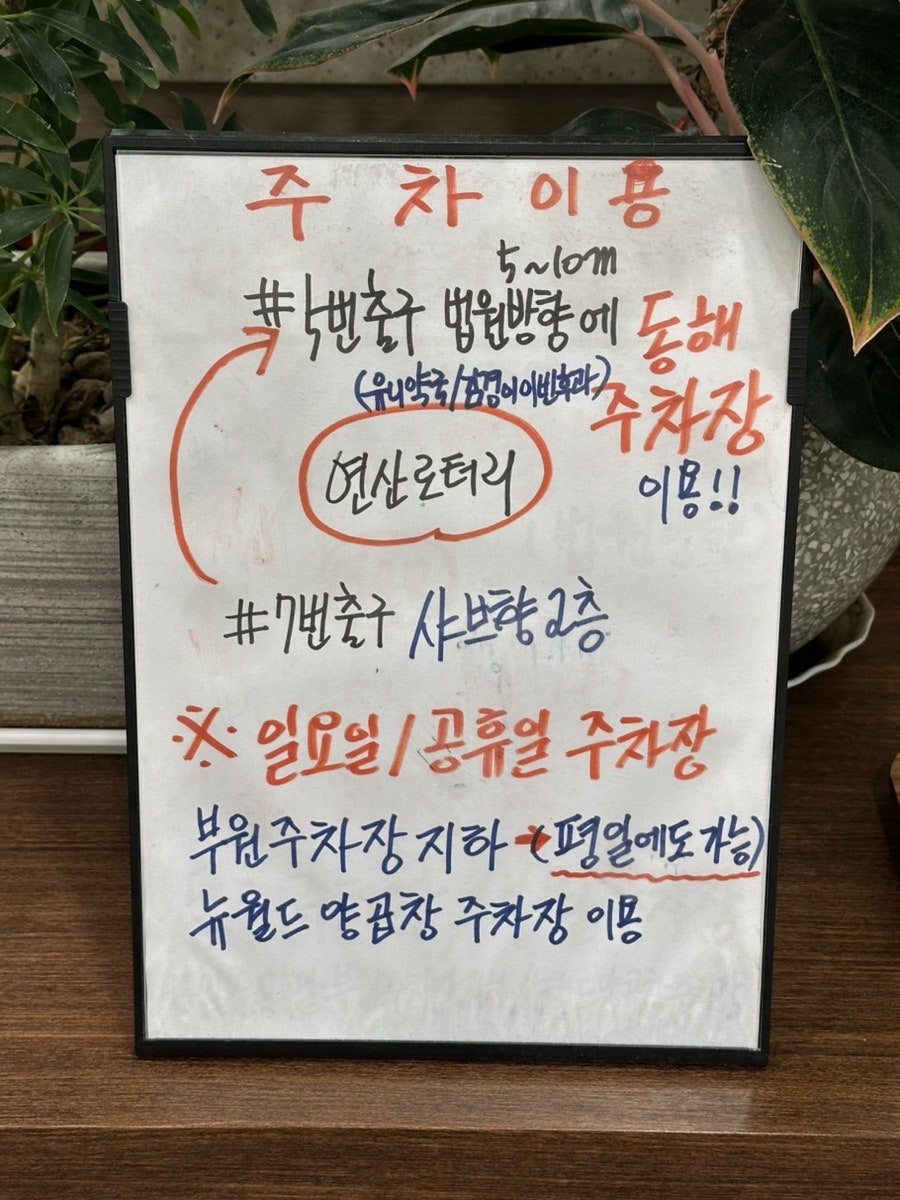 주차이용
5~10m
#5번출구 법원방향에 동해
(유니약국/함경이이비후과) 주차장
이용!!
연산로터리
#7번출구 샤브향 2층
※ 일요일/공휴일 주차장
부원주차장 지하 → (평일에도 가능)
뉴월드 양곱창 주차장 이용